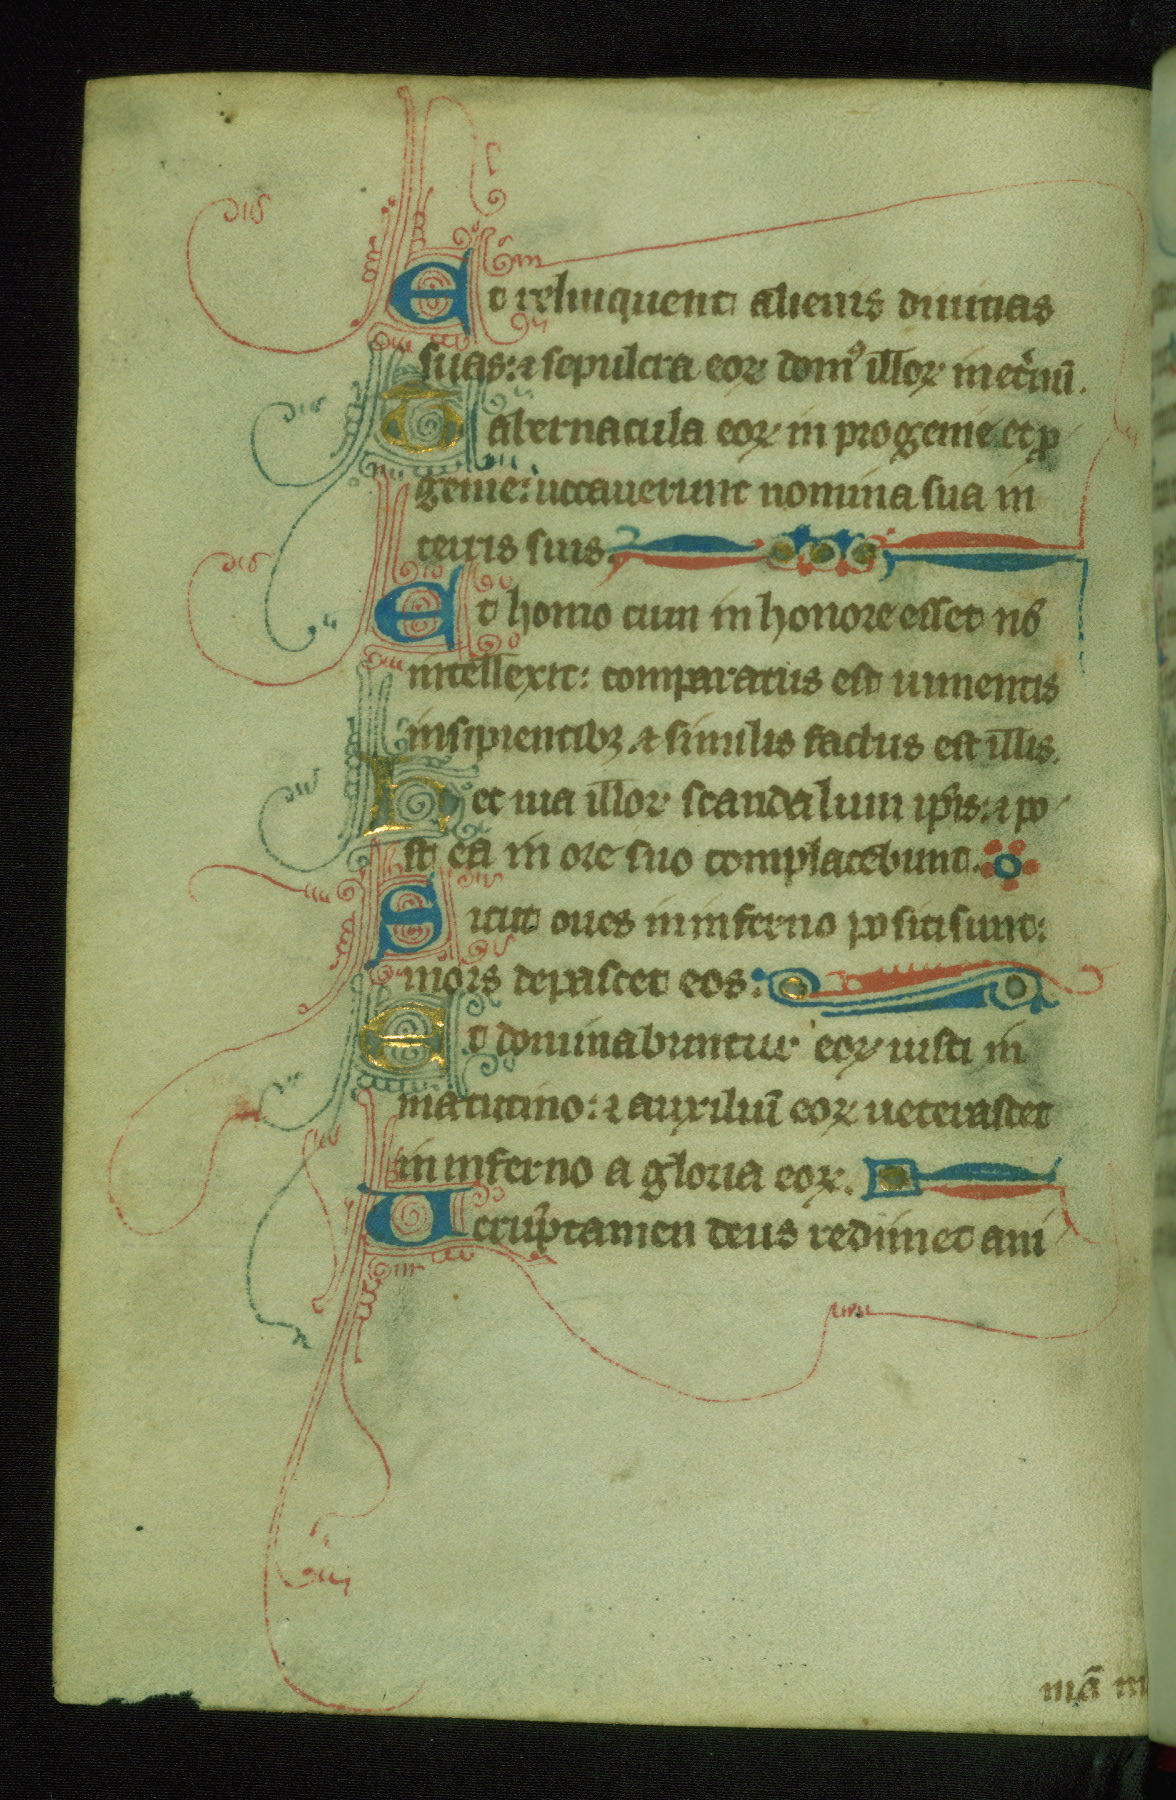 Et relinquent alienis diuitias
suas: ⁊ sepulcra eoꝝ domꝰ illoꝝ in et̾nū.
Tabernacula eoꝝ in progenie et ꝓ
genie: uocauerunt nomina sua in
terris suis.
Et homo cum in honore esset nō
intellexit: comparatus est iumentis
insipientibꝫ ⁊ similis factus est illis.
Hec uia illoꝝ scandalum ip̄is: ⁊ po
st ea in ore suo complacebunt.
Sicut oues in inferno positi sunt:
mors depascet eos:
Et dominabuntur eoꝝ iusti in
matutino: ⁊ auxiliū eoꝝ ueterascet
in inferno a gloria eoꝝ.
Ueruꝑtamen deus redimet ani
mā